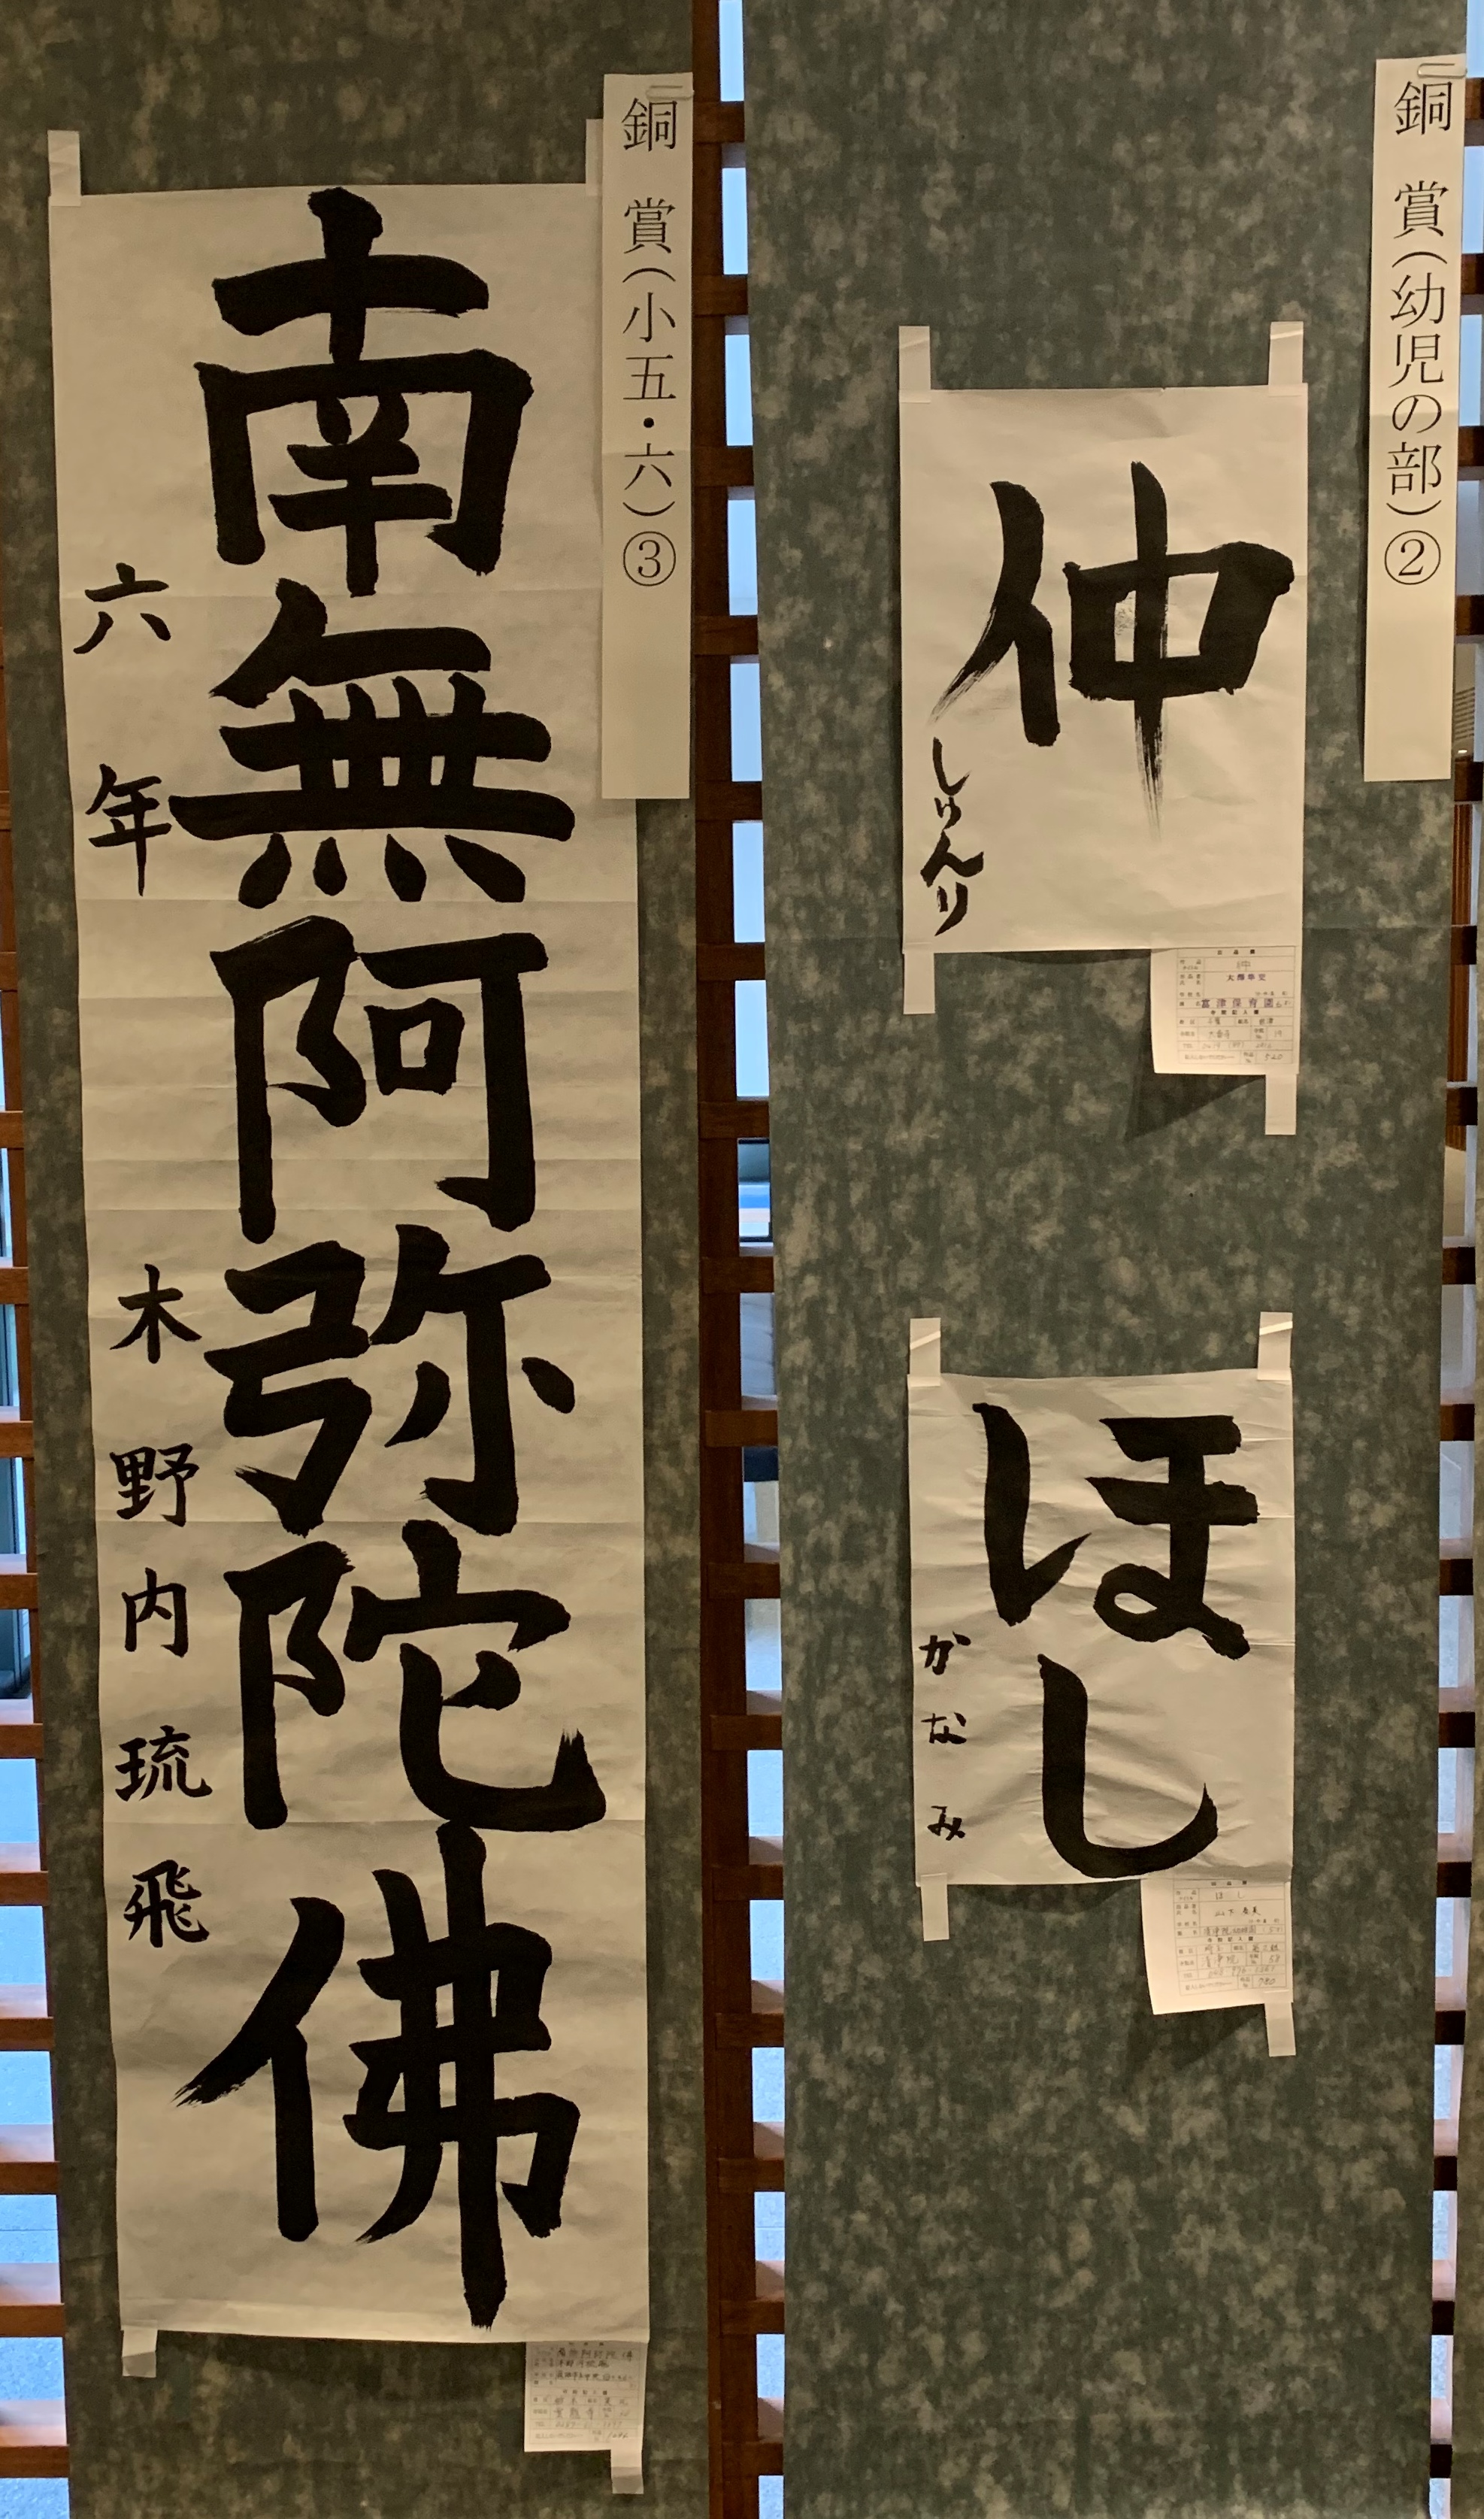 銅賞(幼児の部)②
仲
しゅんり
ほし
かなみ
銅賞(小五・六)③
南無阿弥陀佛
六年 木野内琉飛
富津保育園